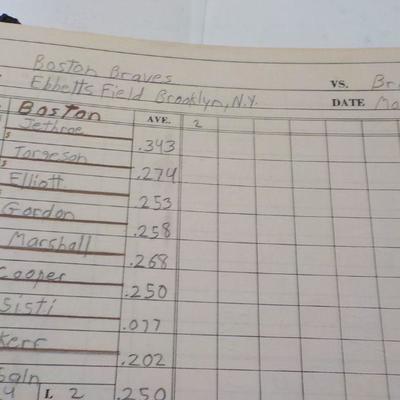 Boston Braves VS. Br
Ebbetts Field Brooklyn, N.Y. DATE Ma
Boston AVE. 2
Jethroe .343
Torgeson .274
Elliott .253
Gordon .258
Marshall .268
Cooper .250
Sisti .077
Kerr .202
Sain
4 L 2 .250